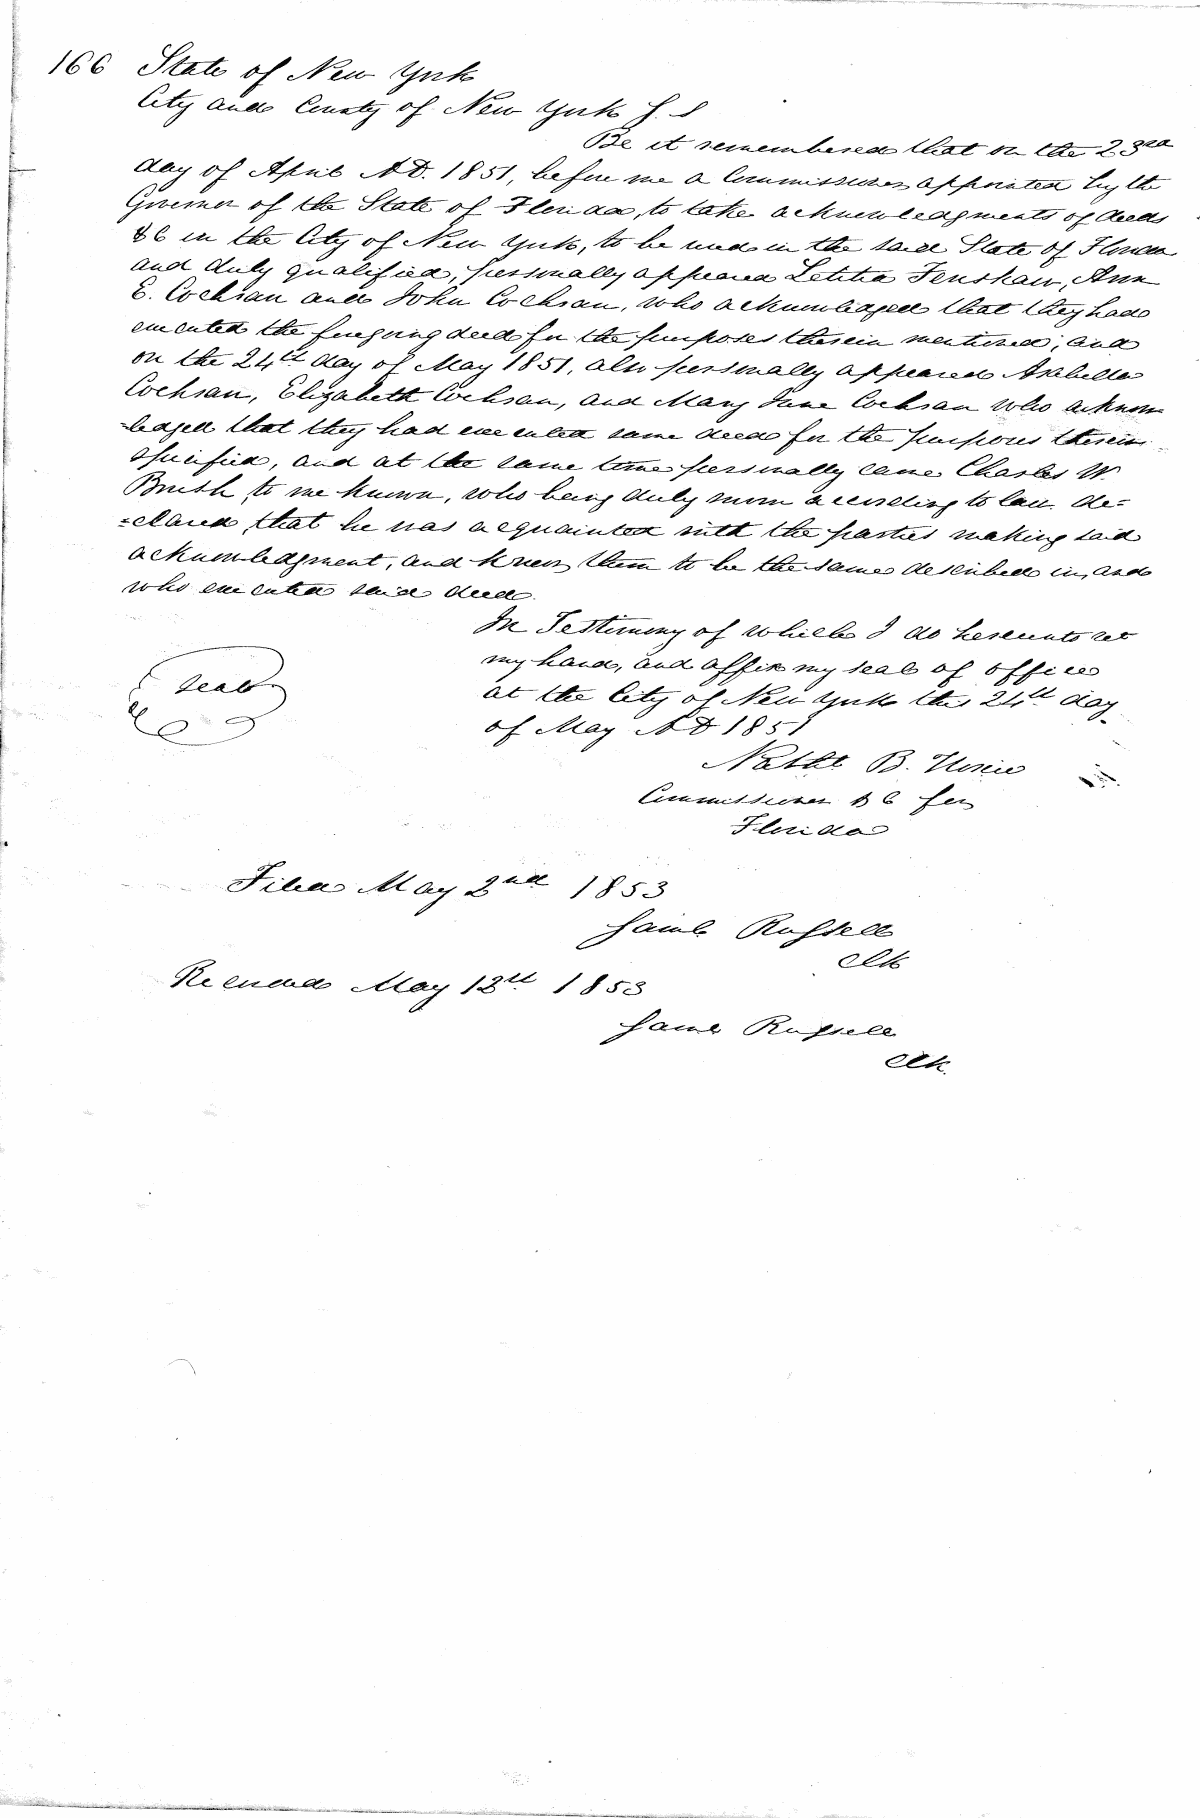 166 State of New York
City and County of New York S.S
Be it remembered that on the 23rd
day of April A.D. 1851, before me a Commissioner appointed by the
Governor of the State of Florida, to take acknowledgments of deeds
&c in the City of New York, to be used in the said State of Florida
and duly qualified, personally appeared Letitia Fenshaw, Ann
E. Cochran and John Cochran, who acknowledged that they had
executed the foregoing deed for the purposes therein mentioned; and
on the 24th day of May 1851, also personally appeared Arabella
Cochran, Elizabeth Cochran, and Mary Jane Cochran who acknow
-ledged that they had executed same deed for the purposes therein
specified, and at the same time personally came Charles W.
Brush, to me known, who being duly sworn according to law de=
=clared, that he was acquainted with the parties making said
acknowledgment, and knew them to be the same described in, and
who executed said deed.
In Testimony of which I do hereunto set
my hand, and affix my seal of office
seal
at the City of New York this 24th day
of May AD 1851
Nathl B.
Commissioner &c for
Florida
Filed May 2nd 1853
Saml Russell
Clk
Recorded May 13th 1853
Saml Russell
Clk.